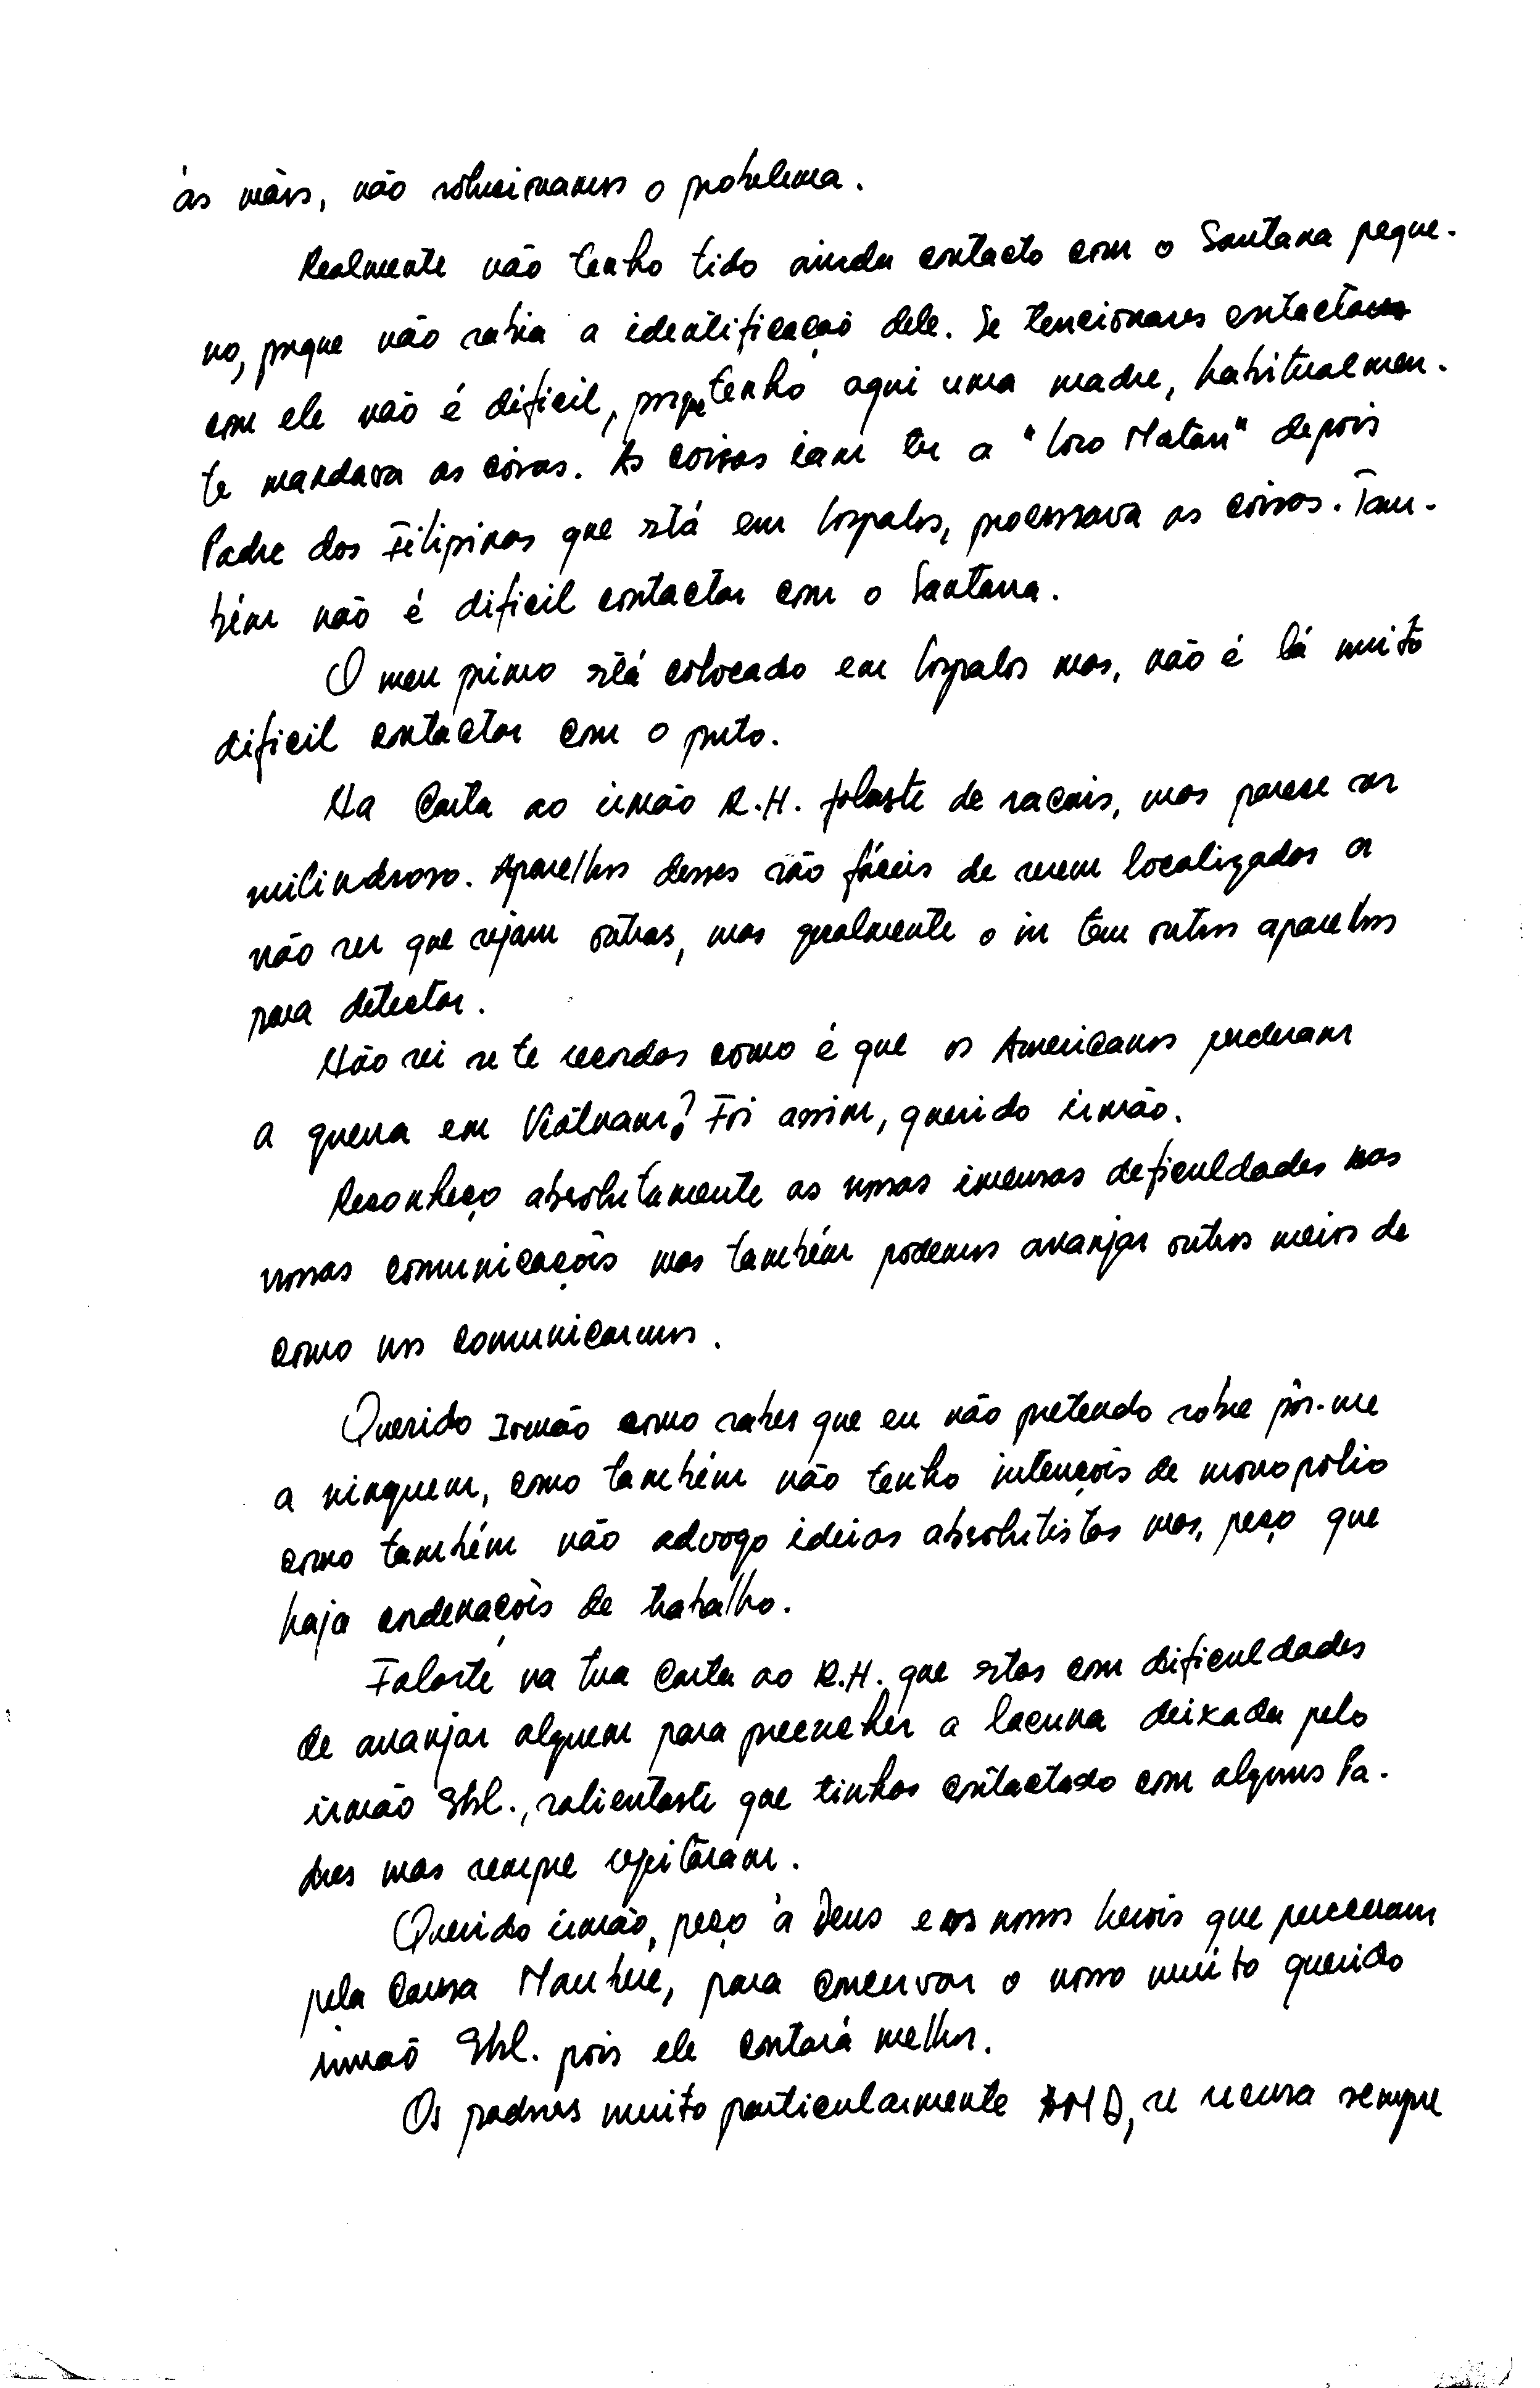 às mãos, não solucionamos o problema.
Realmente não tenho tido ainda contacto com o Santana peque-
no, porque não sabia a identificação dele. Se tencionares contactares
com ele não é dificil, porque tenho aqui uma madre, habitualmen-
te mandava as coisas. As coisas iam ter a "Loro Matan" depois
Padre dos Filipinos que está em Lospalos, processava as coisas. Tam-
bém não é dificil contactar com o Santana.
O meu primo está colocado em Lospalos mas, não é lá muito
dificil contactar com o puto.
Na Carta ao irmão R.H. falaste de racais, mas parece ser
milindroso. Aparelhos desses são fáceis de serem localizados a
não ser que sejam outras, mas geralmente o in tem outros aparelhos
para detectar.
Não sei se te recordas como é que os Americanos perderam
a guerra em Viêtnam? Foi assim, querido irmão.
Reconheço absolutamente as nossas imensas deficuldades nas
nossas comunicações mas também podemos arranjar outros meios de
como nos comunicarmos.
Querido Irmão como sabes que eu não pretendo sobre pôr-me
a ninguem, como também não tenho intenções de monopólio
como também não advogo ideias absolutistas mas, peço que
haja cordenações de trabalho.
Falaste na tua Carta ao R.H. que estas com dificuldades
de arranjar alguem para preencher a lacuna deixada pelo
irmão Sbl., salientaste que tinhas contactado com alguns Pa-
dres mas sempre rejeitaram.
Querido irmão, peço à Deus e aos nossos herois que pereceram
pela Causa Maubere, para conservar o nosso muito querido
irmão Sbl. pois ele contará melhor.
Os padres muito particularmente DMD, se recusa sempre